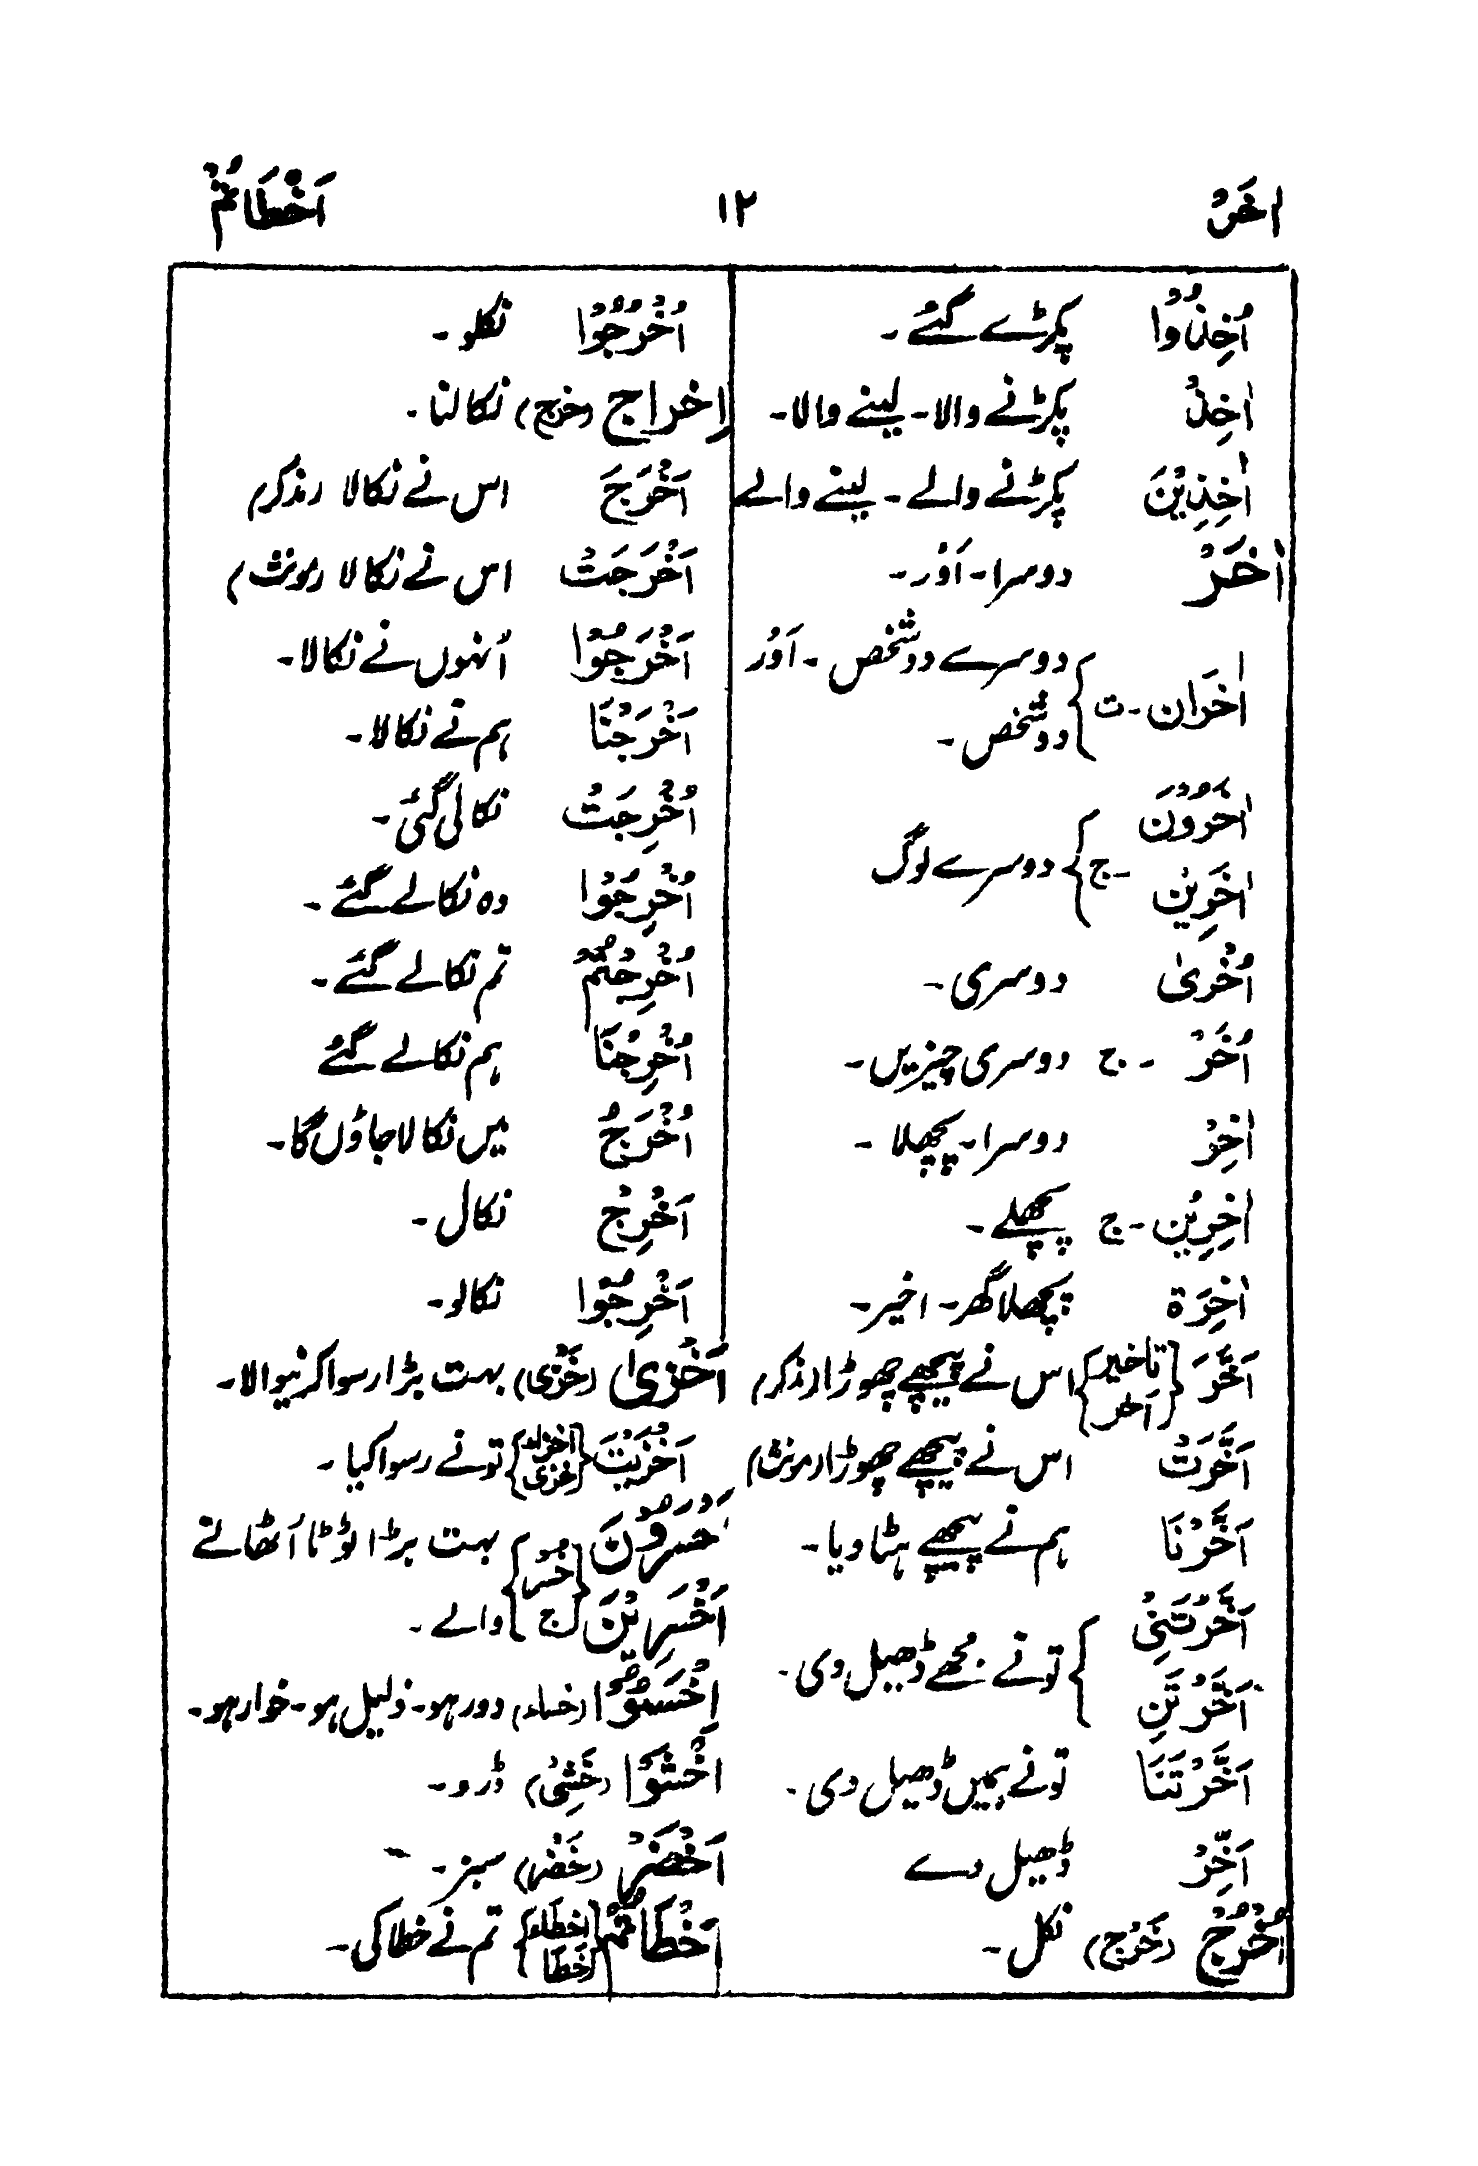 اٰخَرُ ۱۲ اَخْطَاْتُمْ
اُخِذُوْا پکڑے گئے۔
اٰخِذٌ پکڑنے والا۔ لینے والا۔
اٰخِذِيْنَ پکڑنے والے۔ لینے والے
اٰخَرُ دوسرا۔ اَوْر۔
اٰخَرَان۔ت } دوسرے دو شخص۔ اَوْر
دو شخص۔
اٰخَرُوْنَ
اٰخَرِيْنَ ۔ج } دوسرے لوگ
اُخْرىٰ دوسری۔
اُخَرُ ۔ ج دوسری چیزیں۔
اٰخِرُ دوسرا۔ پچھلا۔
اٰخِرِيْن۔ ج پچھلے۔
اٰخِرَة پچھلا گھر۔ اخیر۔
اَخَّرَ {تاخیر اَخر} اس نے پیچھے چھوڑا (مذکر)
اَخَّرَتْ اس نے پیچھے چھوڑا (مونث)
اَخَّرْنَا ہم نے پیچھے ہٹا دیا۔
اَخَّرْتَنِيْ
اَخَّرْتَنِ } تو نے مجھے ڈھیل دی۔
اَخَّرْتَنَا تو نے ہمیں ڈھیل دی۔
اَخِّرْ ڈھیل دے
اُخْرُجْ (خَرَجَ) نکل۔
اُخْرُجُوْا نکلو۔
اِخْراج (خرج) نکالنا۔
اَخْرَجَ اس نے نکالا (مذکر)
اَخْرَجَتْ اس نے نکالا (مونث)
اَخْرَجُوْا اُنہوں نے نکالا۔
اَخْرَجْنَا ہم نے نکالا۔
اُخْرِجَتْ نکالی گئی۔
اُخْرِجُوْا وہ نکالے گئے۔
اُخْرِجْتُمْ تم نکالے گئے۔
اُخْرِجْنَا ہم نکالے گئے
اُخْرَجُ میں نکالا جاؤں گا۔
اَخْرِجْ نکال۔
اَخْرِجُوْا نکالو۔
اَخْزىٰ (خَزْی) بہت بڑا رسوا کرنیوالا۔
اَخْزَيْتَ {اخزاء خزی} تو نے رسوا کیا۔
اَخْسَرُوْنَ {خسر} بہت بڑا ٹوٹا اُٹھانے
اَخْسَرِيْنَ {ج} والے۔
اِخْسَئُوْا (خساء) دور ہو۔ ذلیل ہو۔ خوار ہو۔
اِخْشَوْا (خَشِیَ) ڈرو۔
اَخْضَرُ (خَضِر) سبز۔
اَخْطَاْتُمْ {اخطاء خَطَا} تم نے خطا کی۔